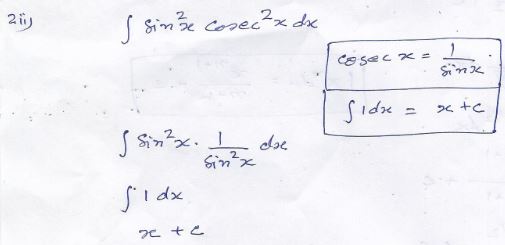 2 ii)
∫ sin²x cosec²x dx
cosec x = 1/sinx .
∫ 1dx = x + c
∫ sin²x . 1/sin²x dx
∫ 1 dx
x + c